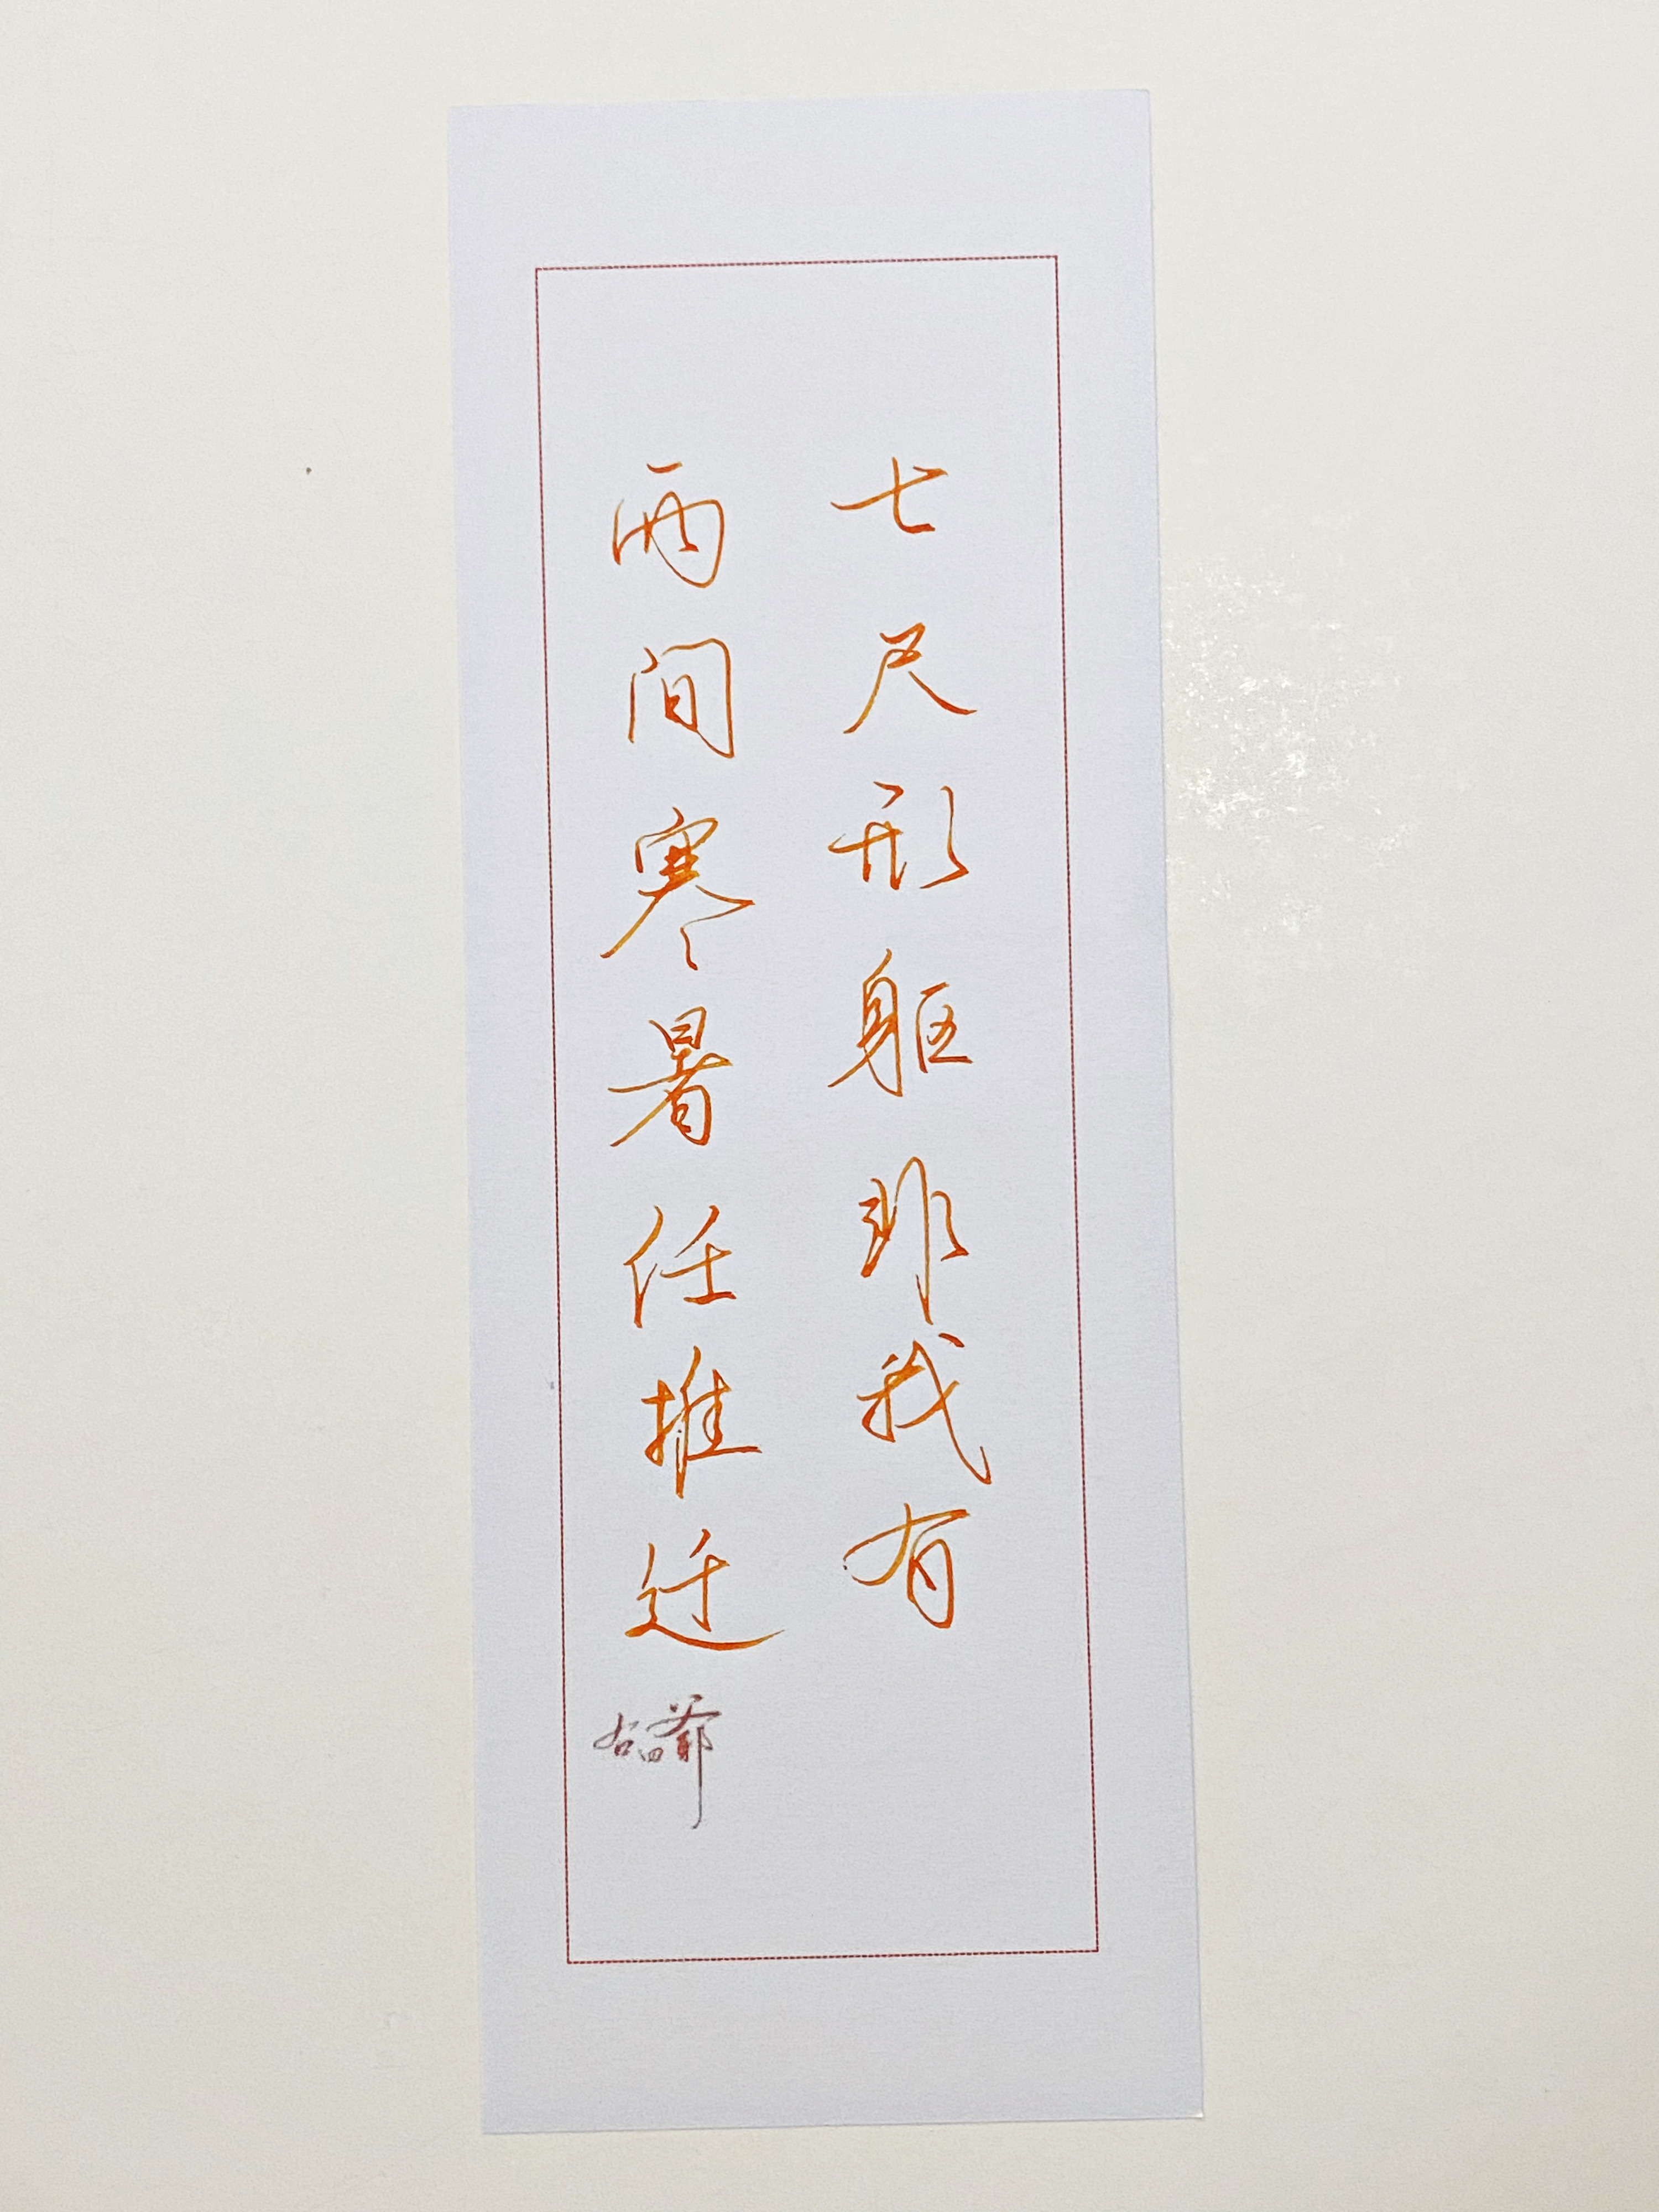 七尺形躯非我有
两间寒暑任推迁